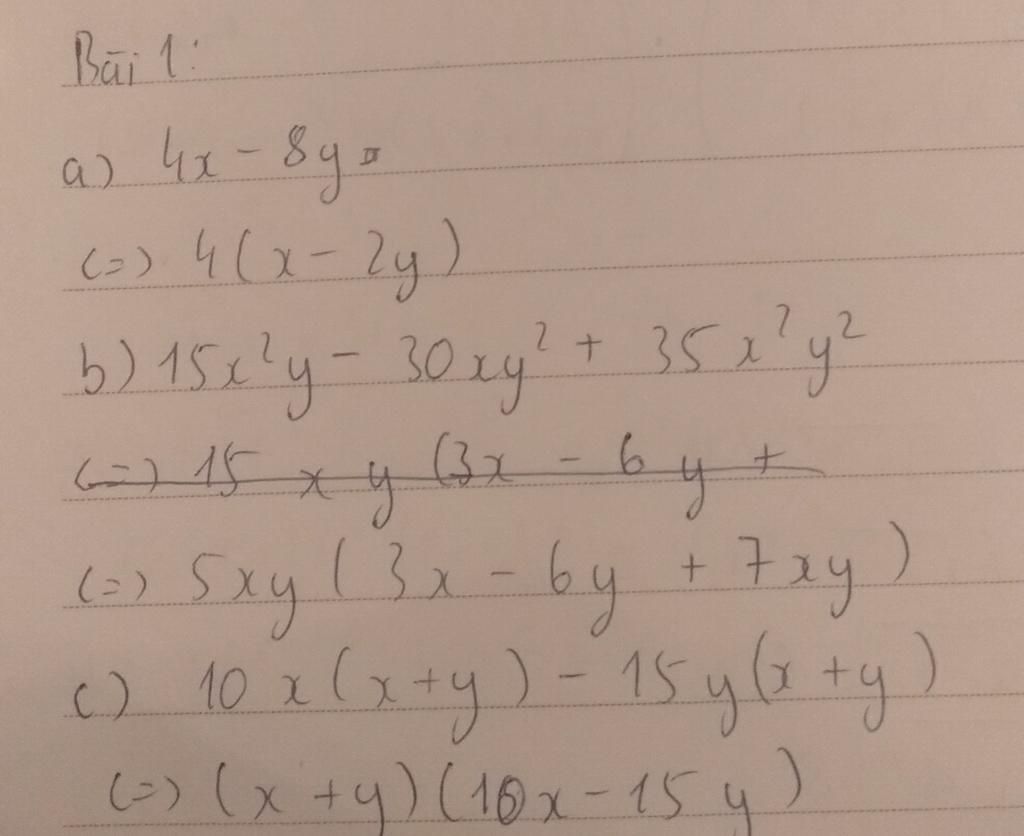 Bài 1:
a) 4x - 8y =
(=) 4(x - 2y)
b) 15x²y - 30xy² + 35x²y²
(=) 15xy(3x - 6y +
(=) 5xy(3x - 6y + 7xy)
c) 10x(x+y) - 15y(x+y)
(=) (x+y)(10x - 15y)